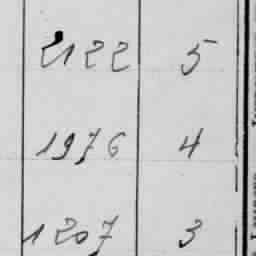 2122 5
1976 4
1207 3